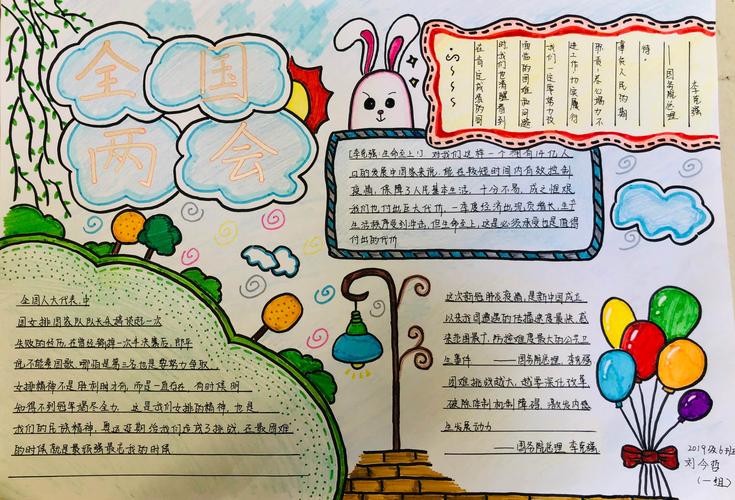 全国
两会
在肯定成绩的同
时我们也清醒看到
面临的困难和问题
我们一定要努力改
进工作,切实履行
职责,尽心竭力不
辜负人民的期
待。
——国务院总理
李克强
[李克强:生命至上!] 对我们这样一个拥有14亿人
口的发展中国家来说,能在较短时间内有效控制
疫情,保障了人民基本生活,十分不易,成之惟艰
我们也付出巨大代价,一季度经济出现负增长,生产
生活秩序受到冲击,但生命至上,这是必须承受也是值得
付出的代价
全国人大代表,中
国女排国家队队长朱婷谈起一次
失败的经历,在曾经输掉一次半决赛后,即早
说不能奏国歌,哪怕是第三名也要努力争取
女排精神不是胜利时才有,而是一直存在,有时候明
知得不到冠军竭尽全力,这是我们女排的精神,也是
我们的民族精神,奥运延期给我们造成了挑战,在最困难
的时候就是最顽强最出我的时候
这次新冠肺炎疫情,是新中国成立
以来我国遭遇的传播速度最快,感
染范围最广,防控难度最大的公共卫
生事件 ——国务院总理 李克强
困难挑战越大,越要深化改革
破除体制机制障碍,激发内生
生发展动力
——国务院总理 李克强
2019级6班
刘今哲
(一组)